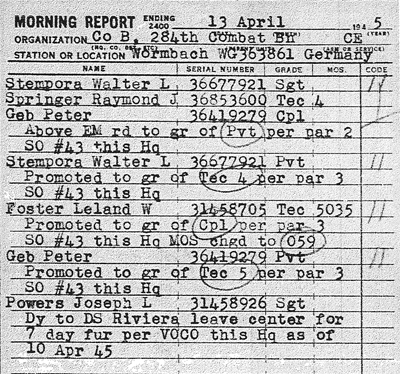 MORNING REPORT ENDING 2400 13 April 194 5
ORGANIZATION Co B, 284th Combat Bn CE
STATION OR LOCATION Wormbach WG363861 Germany
NAME SERIAL NUMBER GRADE MOS. CODE
Stempora Walter L 36677921 Sgt
Springer Raymond J 36853600 Tec 4
Geb Peter 36419279 Cpl
Above EM rd to gr of Pvt per par 2
SO #43 this Hq
Stempora Walter L 36677921 Pvt //
Promoted to gr of Tec 4 per par 3
SO #43 this Hq
Foster Leland W 31458705 Tec 5035 //
Promoted to gr of Cpl per par 3
SO #43 this Hq MOS chgd to 059
Geb Peter 36419279 Pvt //
Promoted to gr of Tec 5 per par 3
SO #43 this Hq
Powers Joseph L 31458926 Sgt
Dy to DS Riviera leave center for
7 day fur per VOCO this Hq as of
10 Apr 45